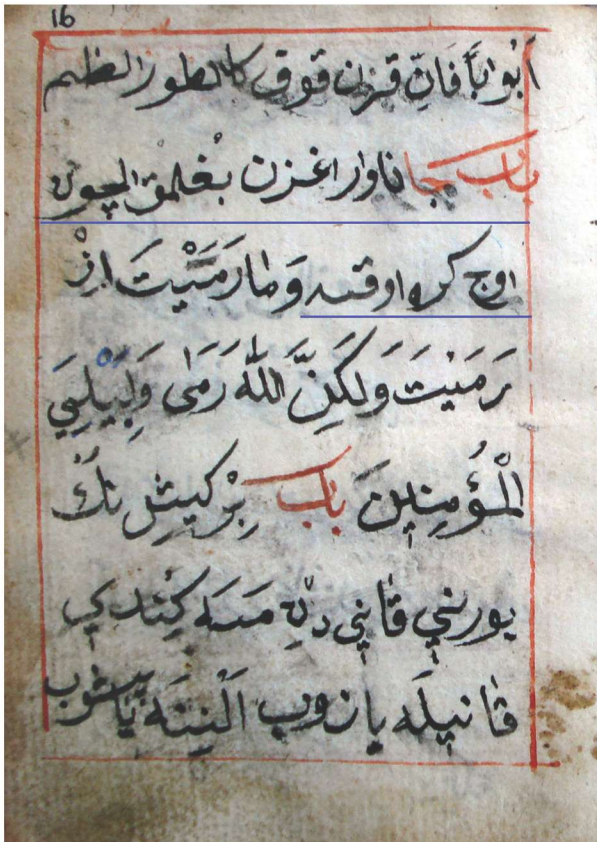 16
اَبْوابًا فَاِنّ قزن قوق كالطور الظيم
باب جاناوار اغزن بغلمق ايچون
اوچ كره اوقنه وَمَا رَمَيْتَ اِذْ
رَمَيْتَ وَلَكِنَّ اللّٰهَ رَمٰى وَلِيُبْلِىَ
الْمُؤْمِنِينَ باب بِرْ كيشِىنكْ
بورنى قانى دِكمسه كندى
قانيله يازوب الننه ياشوب